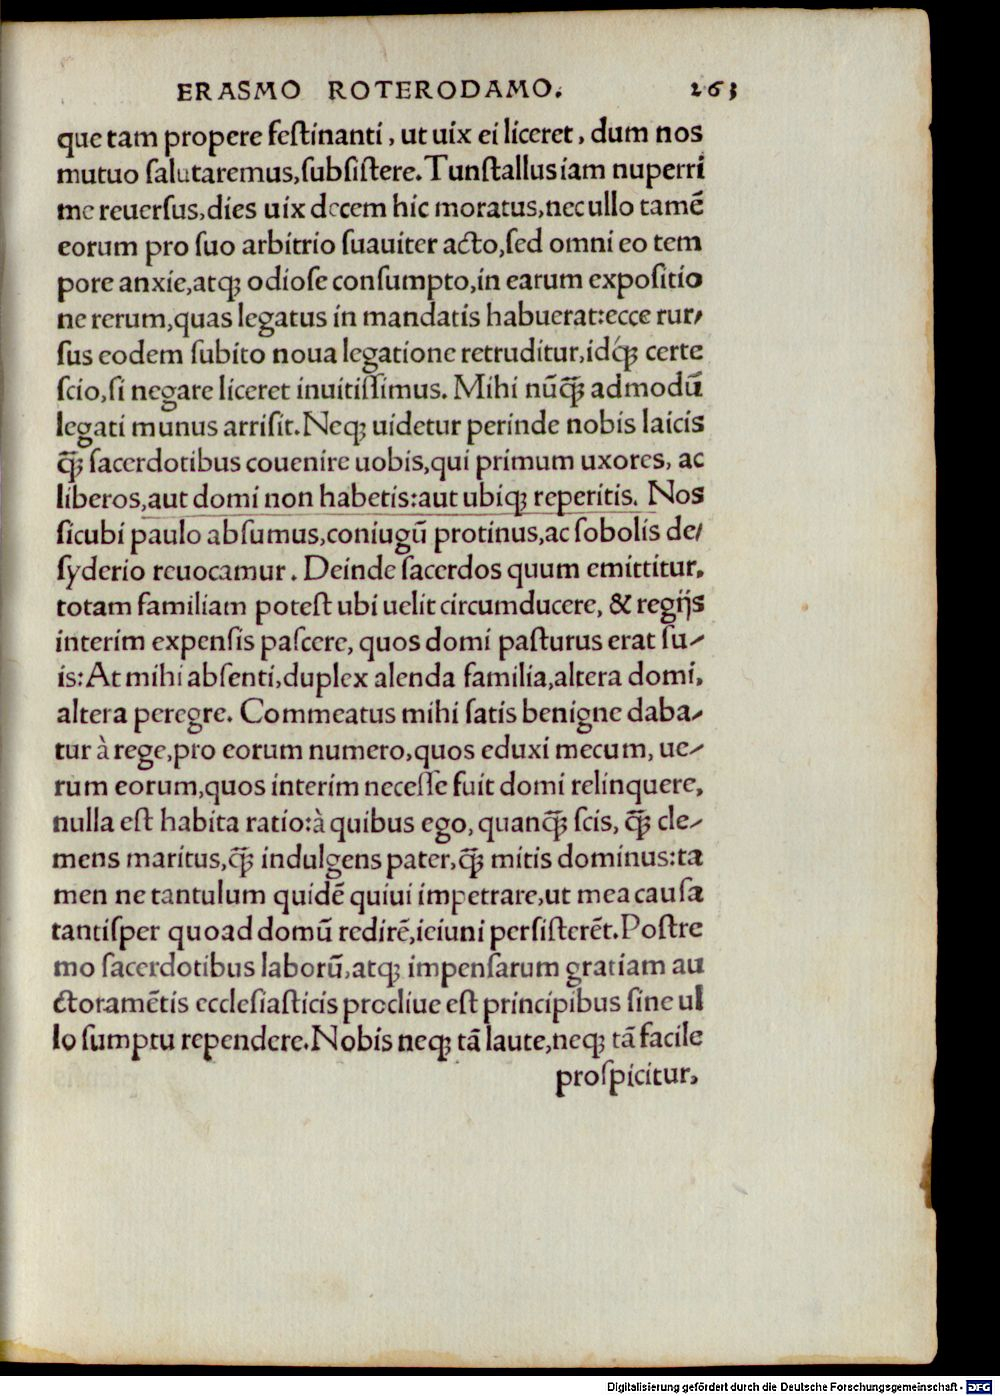 ERASMO ROTERODAMO. 263
que tam propere feſtinanti, ut uix ei liceret, dum nos
mutuo ſalutaremus,ſubſiſtere. Tunſtallus iam nuperri
me reuerſus,dies uix decem hic moratus,nec ullo tamē
eorum pro ſuo arbitrio ſuauiter acto,ſed omni eo tem
pore anxie,atqꝫ odioſe conſumpto,in earum expoſitio
ne rerum,quas legatus in mandatis habuerat:ecce rur⸗
ſus eodem ſubito noua legatione retruditur,idqꝫ́ certe
ſcio,ſi negare liceret inuitiſſimus. Mihi nūqꝫ̄ admodū
legati munus arriſit. Neqꝫ uidetur perinde nobis laicis
qꝫ̄ ſacerdotibus couenire uobis,qui primum uxores, ac
liberos,aut domi non habetis:aut ubiqꝫ reperitis. Nos
ſicubi paulo abſumus,coniugū protinus,ac ſobolis de⸗
ſyderio reuocamur. Deinde ſacerdos quum emittitur,
totam familiam poteſt ubi uelit circumducere, & regijs
interim expenſis paſcere, quos domi paſturus erat ſu⸗
is: At mihi abſenti,duplex alenda familia,altera domi,
altera peregre. Commeatus mihi ſatis benigne daba⸗
tur à rege,pro eorum numero,quos eduxi mecum, ue⸗
rum eorum,quos interim neceſſe fuit domi relinquere,
nulla eſt habita ratio:à quibus ego, quanqꝫ̄ ſcis, qꝫ̄ cle⸗
mens maritus,qꝫ̄ indulgens pater,qꝫ̄ mitis dominus:ta
men ne tantulum quidē quiui impetrare,ut mea cauſa
tantiſper quoad domū redirē,ieiuni perſiſterēt. Poſtre
mo ſacerdotibus laborū,atqꝫ impenſarum gratiam au
ctoramētis eccleſiaſticis procliue eſt principibus ſine ul
lo ſumptu rependere. Nobis neqꝫ tā laute,neqꝫ tā facile
proſpicitur,
Digitalisierung gefördert durch die Deutsche Forschungsgemeinschaft - DFG